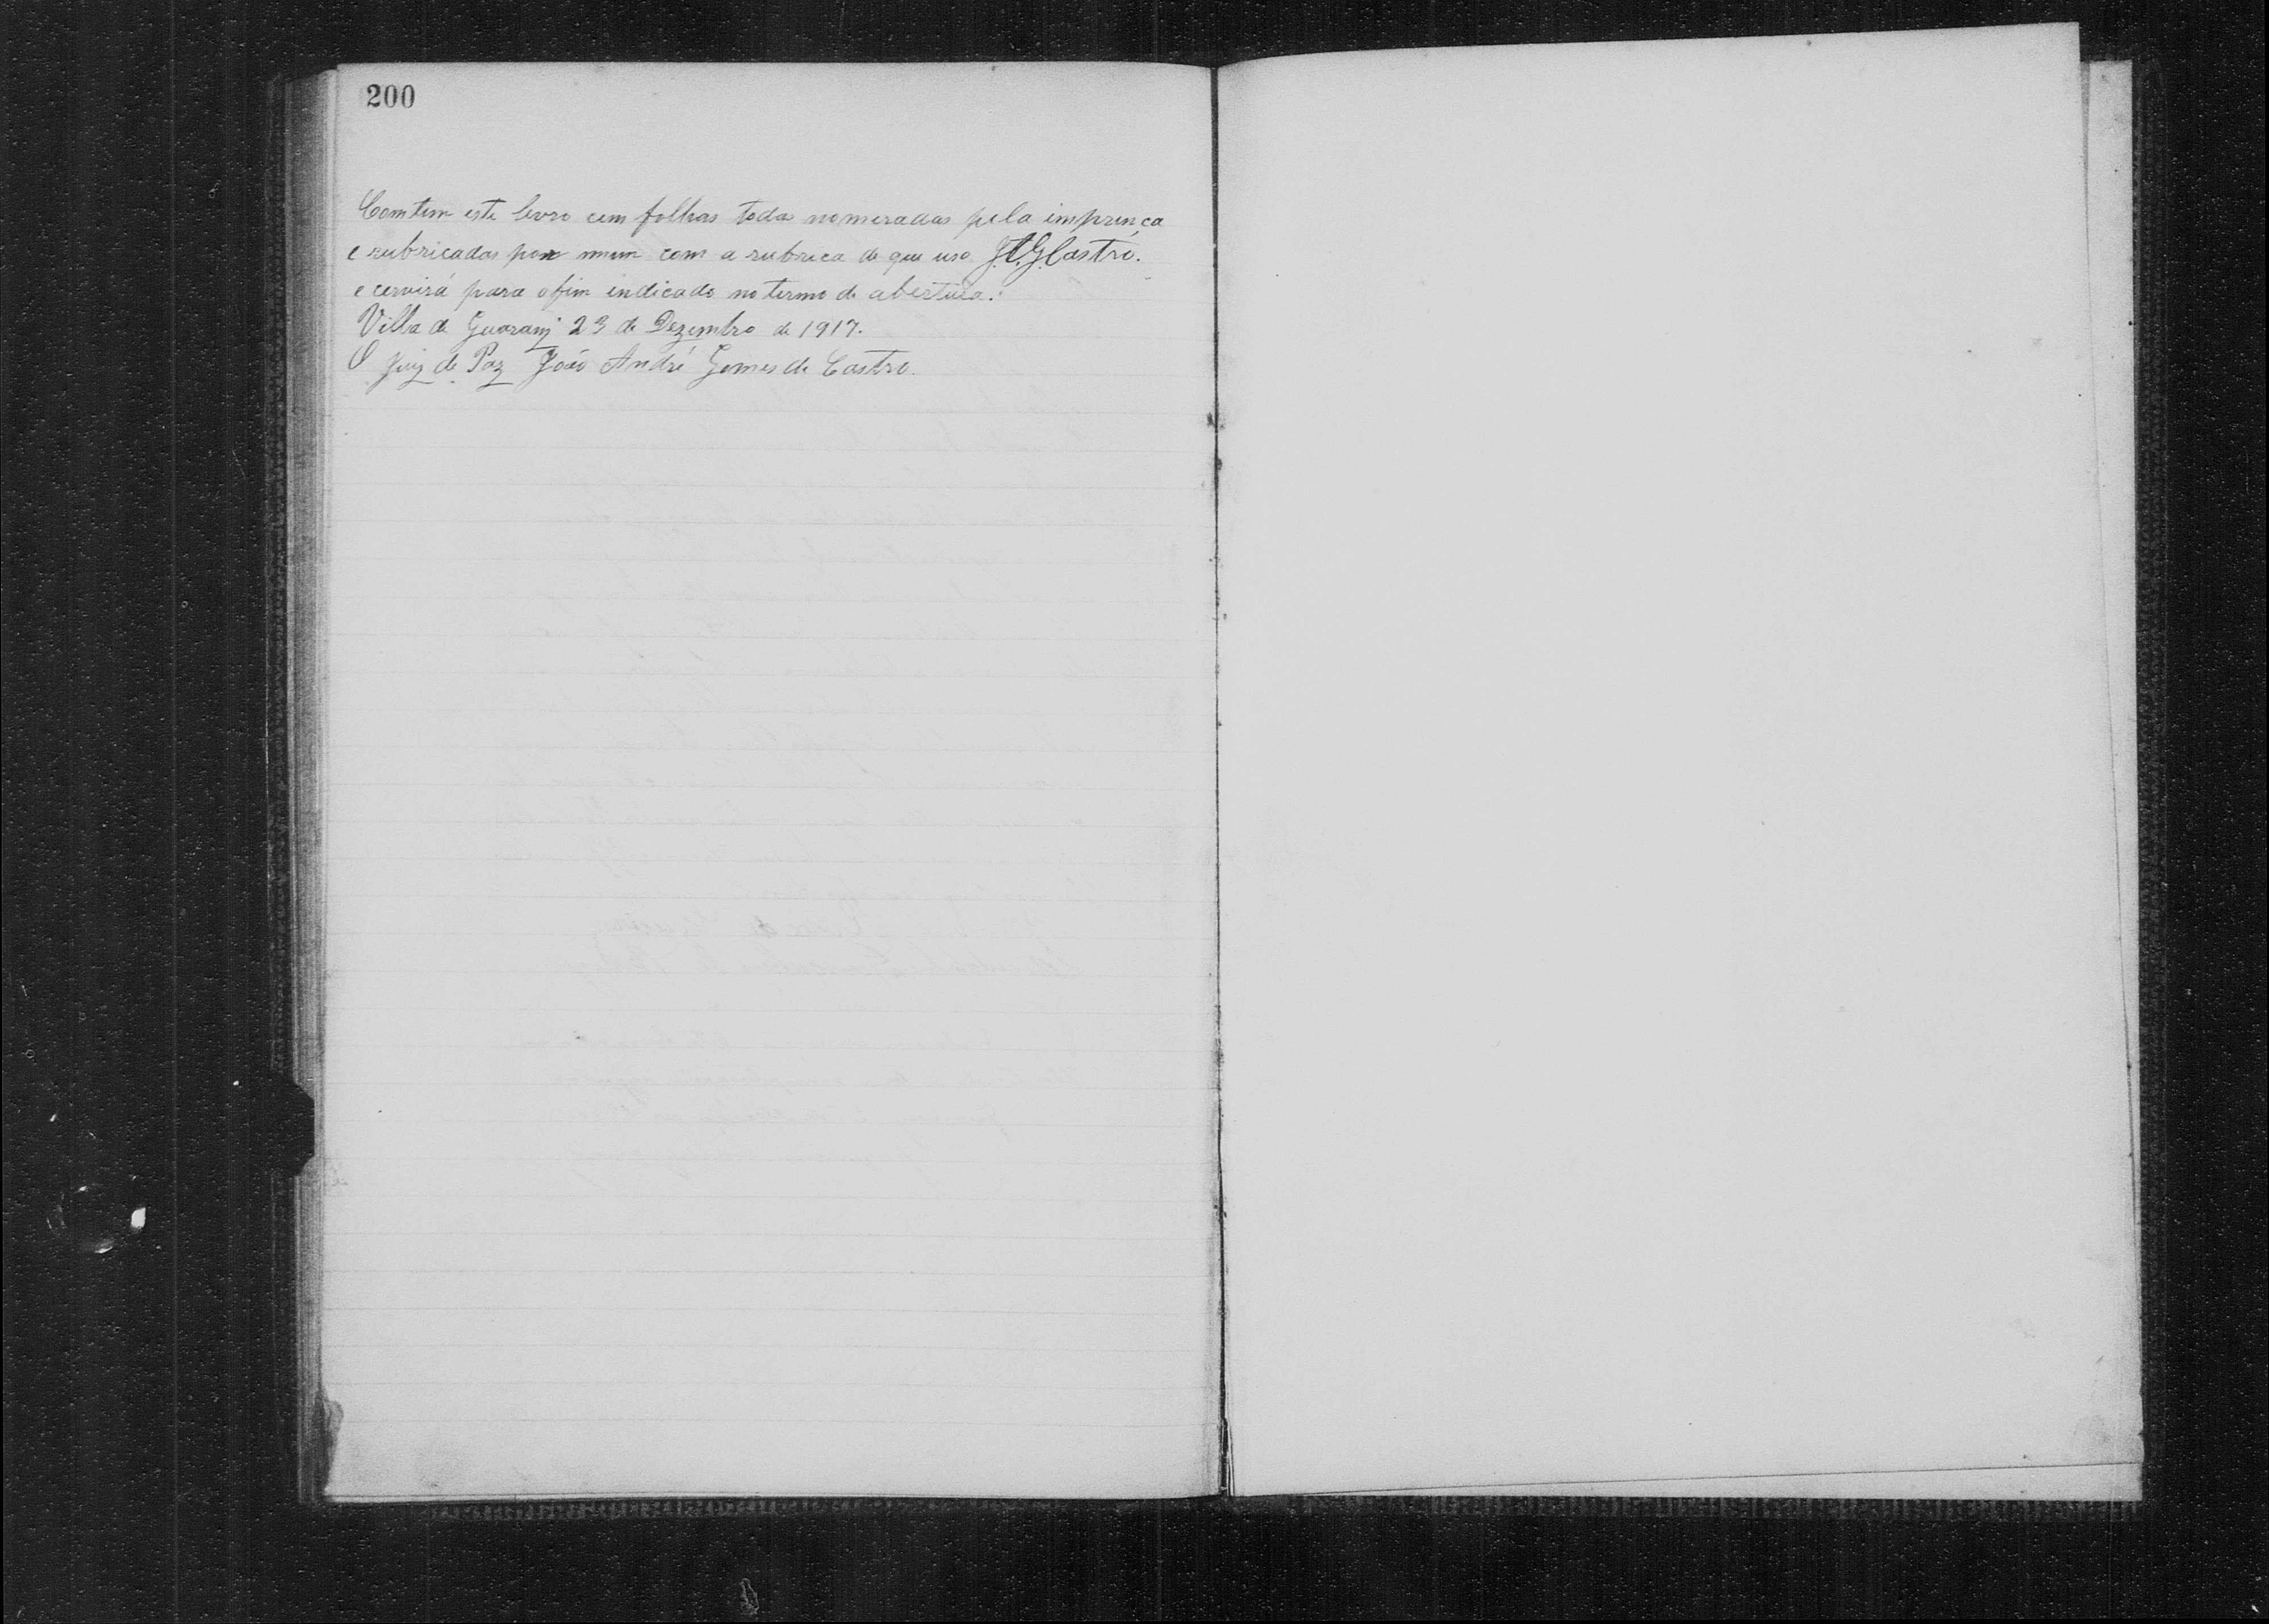 200
Comtem este levro cem folhas toda nomeradas pela imprença
e rubricadas por mim com a rubrica de que uso J.A.G.Castro.
e cervirá para o fim indicado no termo de abertura.
Villa de Guarany 23 de Dezembro de 1917.
O Juiz de Paz João André Gomes de Castro.